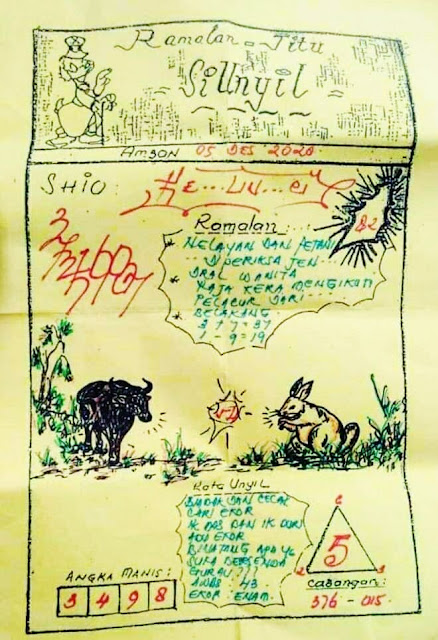 Ramalan Jitu
Si Unyil
AMBON 05 DES 2020
SHIO:
82
Ramalan:
* NELAYAN DAN PETANI
DI PERIKSA JEN
DRAL WANITA
* RAJA KERA MENGIKUTI
PELACUR DARI
BELAKANG
3 + 7 = 37
1 - 9 = 19
Kata Unyil
BADAK DAN CECAK
CARI EKOR
IK MAS DAN IK DURI
ADU EKOR
BINATANG APA YG
SUKA BERSENDA
GURAU
43
EKOR ENAM.
ANGKA MANIS:
3 4 9 8
6
5
2 3
Cabangan:
376 - 015